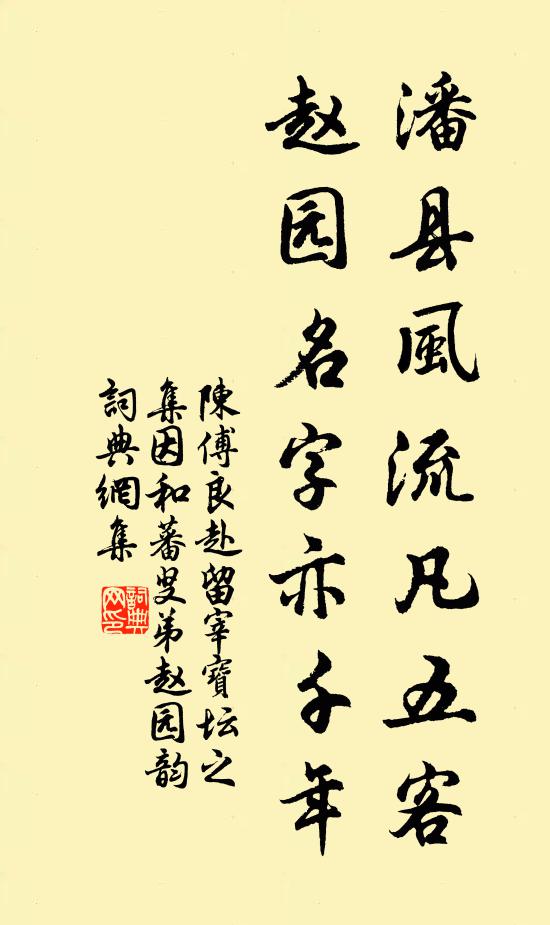 潘县風流凡五客
赵园名字亦千年
陳傅良赴留宰寶坛之
集因和蕃叟弟赵园韵
詞典網集
詞典網印